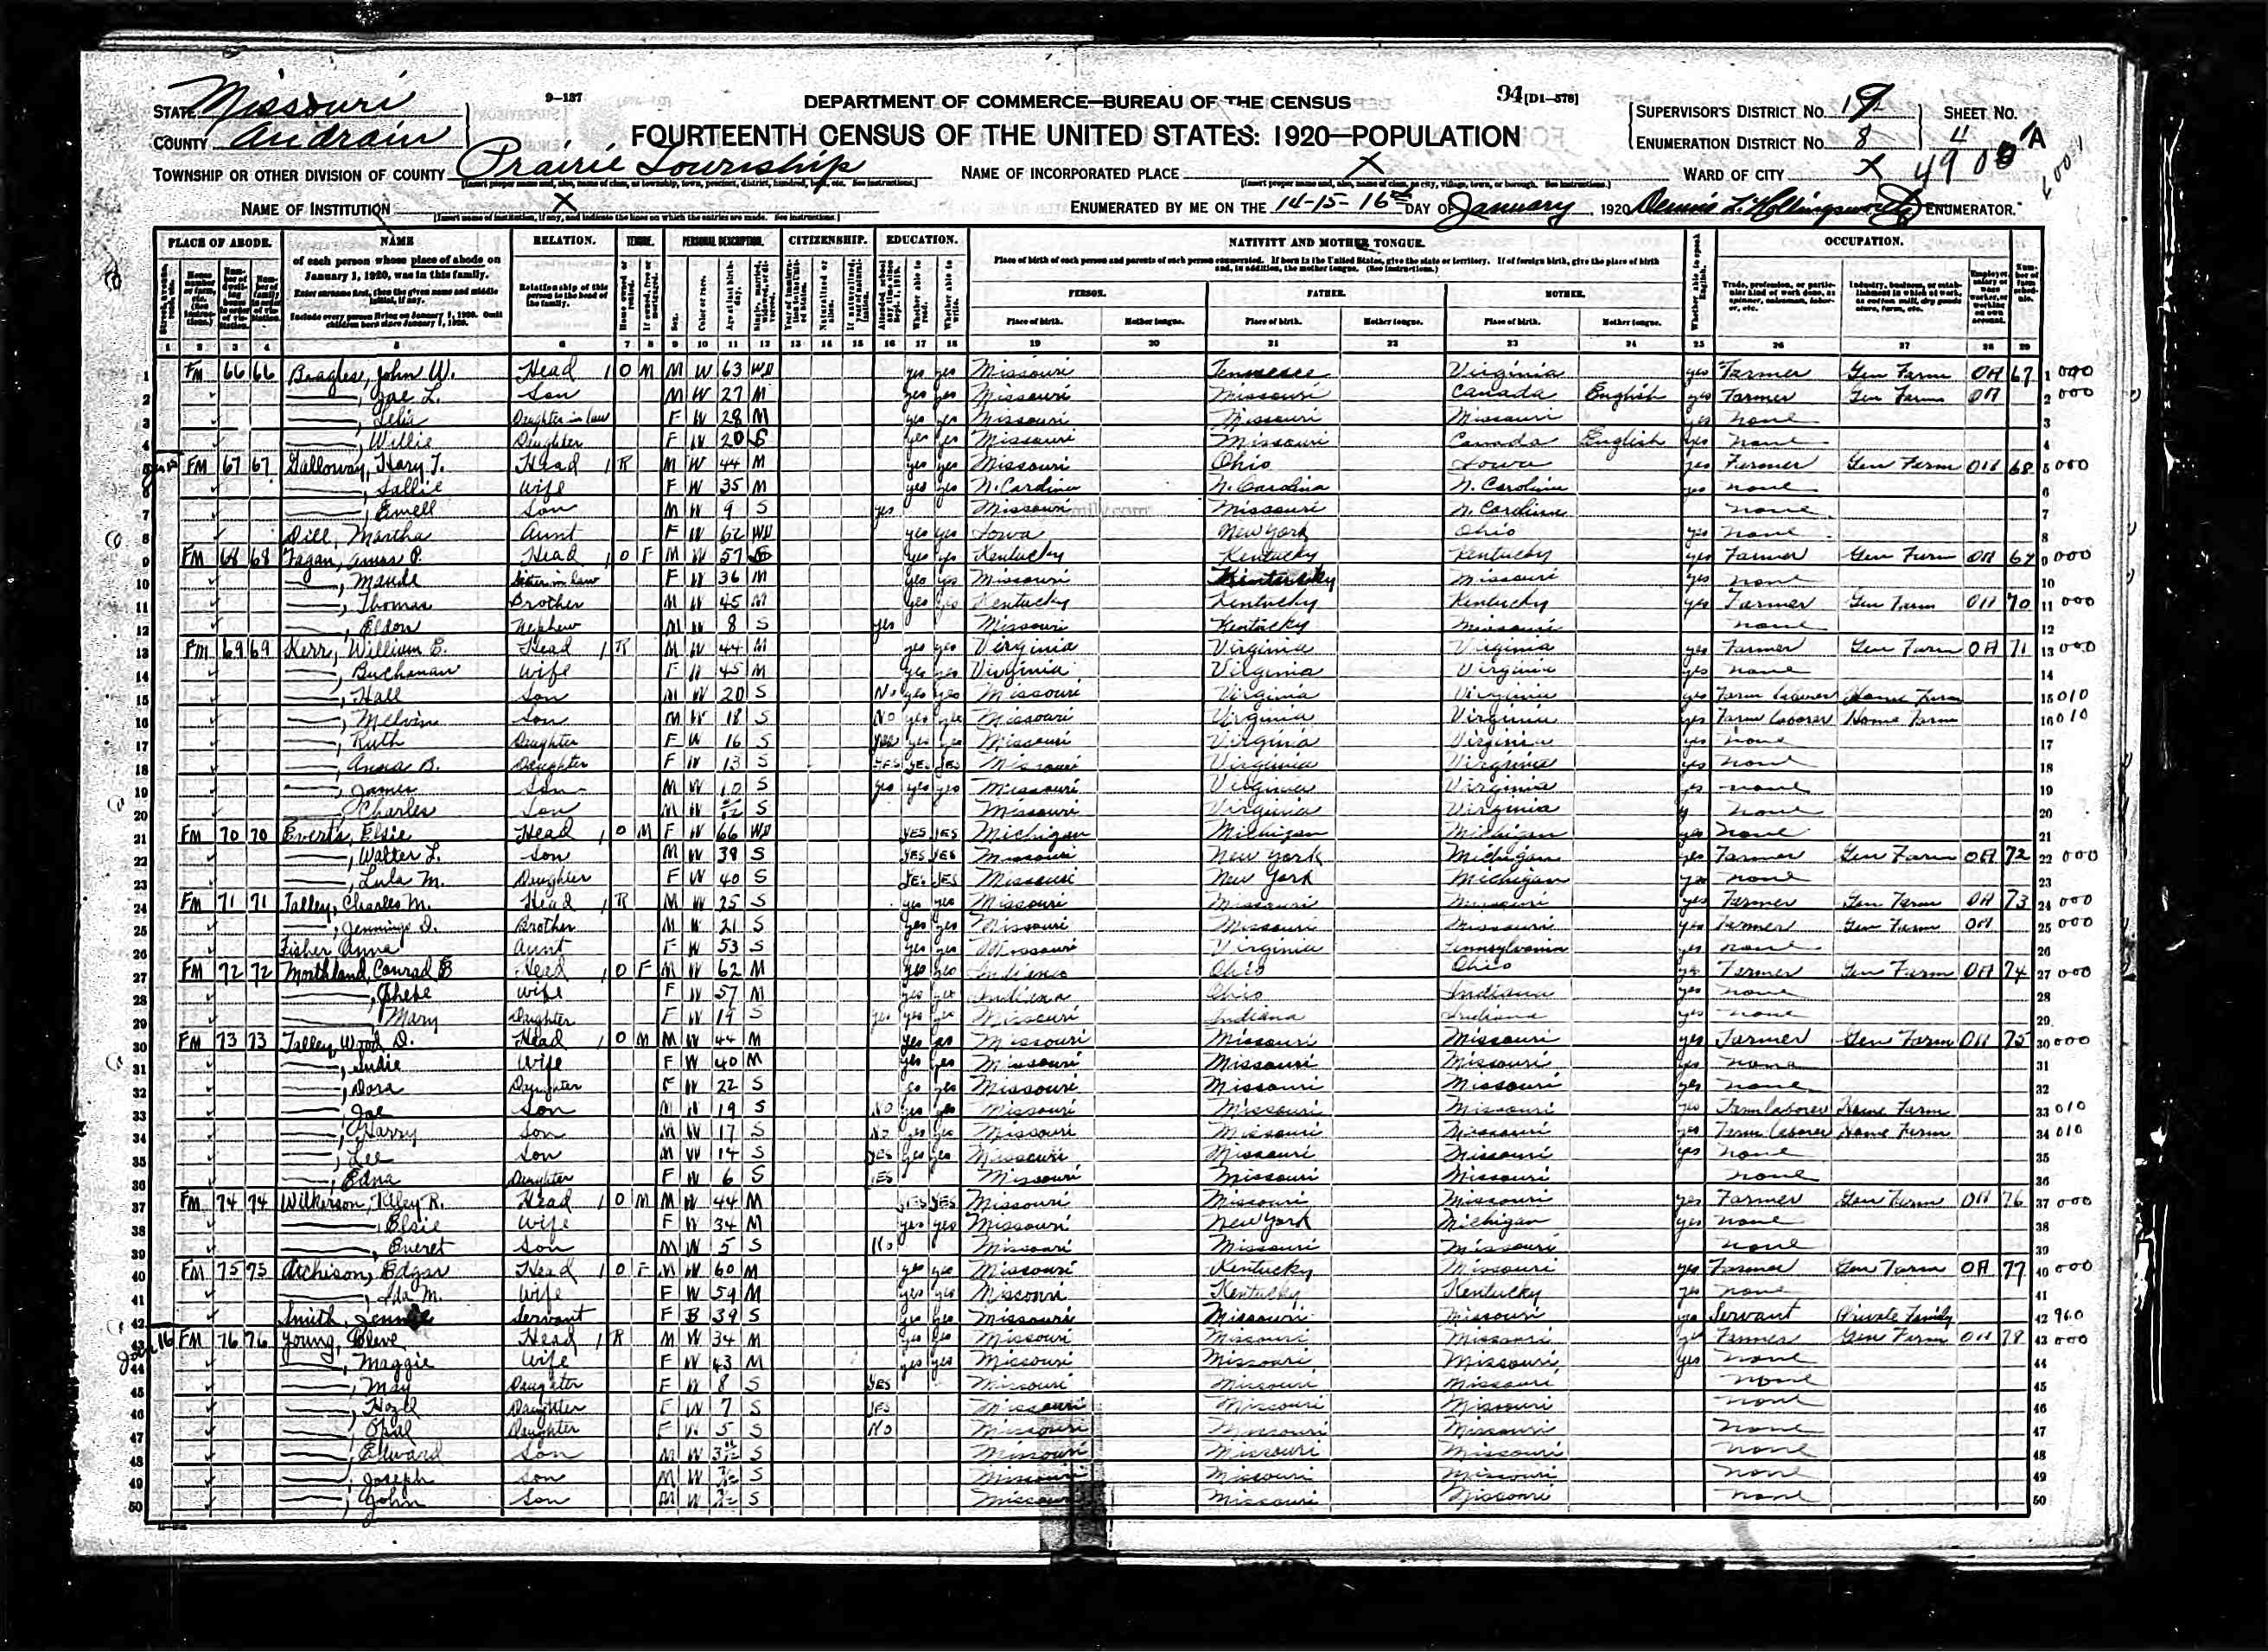 9-137
94 [D1-578]
STATE Missouri
COUNTY Audrain
DEPARTMENT OF COMMERCE—BUREAU OF THE CENSUS
FOURTEENTH CENSUS OF THE UNITED STATES: 1920—POPULATION
SUPERVISOR'S DISTRICT No. 19 SHEET No.
ENUMERATION DISTRICT No. 8 4 A
TOWNSHIP OR OTHER DIVISION OF COUNTY Prairie Township NAME OF INCORPORATED PLACE X WARD OF CITY X
NAME OF INSTITUTION X ENUMERATED BY ME ON THE 14-15-16th DAY OF January, 1920 Dennis L. Hollingsworth ENUMERATOR.
PLACE OF ABODE. NAME RELATION. TENURE. PERSONAL DESCRIPTION. CITIZENSHIP. EDUCATION. NATIVITY AND MOTHER TONGUE. OCCUPATION.
of each person whose place of abode on January 1, 1920, was in this family.
Enter surname first, then the given name and middle initial, if any.
Include every person living on January 1, 1920. Omit children born since January 1, 1920.
Relationship of this person to the head of the family.
Place of birth of each person and parents of each person enumerated. If born in the United States, give the state or territory. If of foreign birth, give the place of birth and, in addition, the mother tongue. (See instructions.)
PERSON. FATHER. MOTHER.
Place of birth. Mother tongue. Place of birth. Mother tongue. Place of birth. Mother tongue.
1 2 3 4 5 6 7 8 9 10 11 12 13 14 15 16 17 18 19 20 21 22 23 24 25 26 27 28 29
1 FM 66 66 Beagles, John W. Head 1 O M M W 63 Wd yes yes Missouri Tennessee Virginia yes Farmer Gen Farm OA 67 1 000
2 ——, Joe L. Son M W 27 M yes yes Missouri Missouri Canada English yes Farmer Gen Farm OA 2 000
3 ——, Lelia Daughter in law F W 28 M yes yes Missouri Missouri Missouri yes none 3
4 ——, Willie Daughter F W 20 S yes yes Missouri Missouri Canada English yes none 4
5 FM 67 67 Galloway, Harry T. Head 1 R M W 44 M yes yes Missouri Ohio Iowa yes Farmer Gen Farm OA 68 5 000
6 ——, Sallie Wife F W 35 M yes yes N. Carolina N. Carolina N. Carolina yes none 6
7 ——, Emell Son M W 9 S yes Missouri Missouri N. Carolina none 7
8 Dill, Martha Aunt F W 62 Wd yes yes Iowa New York Ohio yes none 8
9 FM 68 68 Fagan, Amos P. Head 1 O F M W 57 S yes yes Kentucky Kentucky Kentucky yes Farmer Gen Farm OA 69 9 000
10 ——, Maude Sister in law F W 36 M yes yes Missouri Kentucky Missouri yes none 10
11 ——, Thomas Brother M W 45 M yes yes Kentucky Kentucky Kentucky yes Farmer Gen Farm OA 70 11 000
12 ——, Eldon Nephew M W 8 S yes Missouri Kentucky Missouri none 12
13 FM 69 69 Kerr, William E. Head 1 R M W 44 M yes yes Virginia Virginia Virginia yes Farmer Gen Farm OA 71 13 000
14 ——, Buchanan Wife F W 45 M yes yes Virginia Virginia Virginia yes none 14
15 ——, Hall Son M W 20 S No yes yes Missouri Virginia Virginia yes Farm laborer Home Farm 15 010
16 ——, Melvin Son M W 18 S No yes yes Missouri Virginia Virginia yes Farm laborer Home Farm 16 010
17 ——, Ruth Daughter F W 16 S yes yes yes Missouri Virginia Virginia yes none 17
18 ——, Anna B. Daughter F W 13 S yes yes yes Missouri Virginia Virginia yes none 18
19 ——, James Son M W 10 S yes yes yes Missouri Virginia Virginia yes none 19
20 Charles Son M W S Missouri Virginia Virginia none 20
21 FM 70 70 Everts, Elsie Head 1 O M F W 66 Wd yes yes Michigan Michigan Michigan yes none 21
22 ——, Walter L. Son M W 38 S yes yes Missouri New York Michigan yes Farmer Gen Farm OA 72 22 000
23 ——, Lula M. Daughter F W 40 S yes yes Missouri New York Michigan yes none 23
24 FM 71 71 Talley, Charles M. Head 1 R M W 25 S yes yes Missouri Missouri Missouri yes Farmer Gen Farm OA 73 24 000
25 ——, Jennings D. Brother M W 21 S yes yes Missouri Missouri Missouri yes Farmer Gen Farm OA 25 000
26 Fisher Anna Aunt F W 53 S yes yes Missouri Virginia Pennsylvania yes none 26
27 FM 72 72 Morthland, Conrad B Head 1 O F M W 62 M yes yes Indiana Ohio Ohio yes Farmer Gen Farm OA 74 27 000
28 ——, Phebe Wife F W 57 M yes yes Indiana Ohio Indiana yes none 28
29 —— Mary Daughter F W 19 S yes yes yes Missouri Indiana Indiana yes none 29
30 FM 73 73 Talley, Wood D. Head 1 O M M W 44 M yes yes Missouri Missouri Missouri yes Farmer Gen Farm OA 75 30 000
31 ——, Sudie Wife F W 40 M yes yes Missouri Missouri Missouri yes none 31
32 ——, Dora Daughter F W 22 S yes Missouri Missouri Missouri yes none 32
33 ——, Joe Son M W 19 S No yes yes Missouri Missouri Missouri yes Farm laborer Home Farm 33 010
34 ——, Harry Son M W 17 S No yes yes Missouri Missouri Missouri yes Farm laborer Home Farm 34 010
35 ——, Lee Son M W 14 S yes yes yes Missouri Missouri Missouri yes none 35
36 ——, Edna Daughter F W 6 S yes Missouri Missouri Missouri none 36
37 FM 74 74 Wilkerson, Riley R. Head 1 O M M W 44 M yes yes Missouri Missouri Missouri yes Farmer Gen Farm OA 76 37 000
38 ——, Elsie Wife F W 34 M yes yes Missouri New York Michigan yes none 38
39 ——, Everet Son M W 5 S No Missouri Missouri Missouri none 39
40 FM 75 75 Atchison, Edgar Head 1 O F M W 60 M yes yes Missouri Kentucky Missouri yes Farmer Gen Farm OA 77 40 000
41 ——, Ida M. Wife F W 59 M yes yes Missouri Kentucky Kentucky yes none 41
42 Smith, Jennie Servant F B 39 S yes yes Missouri Missouri Missouri yes Servant Private Family 42 960
43 16 FM 76 76 Young, Cleve Head 1 R M W 34 M yes yes Missouri Missouri Missouri yes Farmer Gen Farm OA 78 43 000
44 ——, Maggie Wife F W 43 M yes yes Missouri Missouri Missouri yes none 44
45 ——, May Daughter F W 8 S yes Missouri Missouri Missouri none 45
46 ——, Hazel Daughter F W 7 S yes Missouri Missouri Missouri none 46
47 ——, Opal Daughter F W 5 S No Missouri Missouri Missouri none 47
48 ——, Edward Son M W S Missouri Missouri Missouri none 48
49 ——, Joseph Son M W S Missouri Missouri Missouri none 49
50 ——, John Son M W S Missouri Missouri Missouri none 50